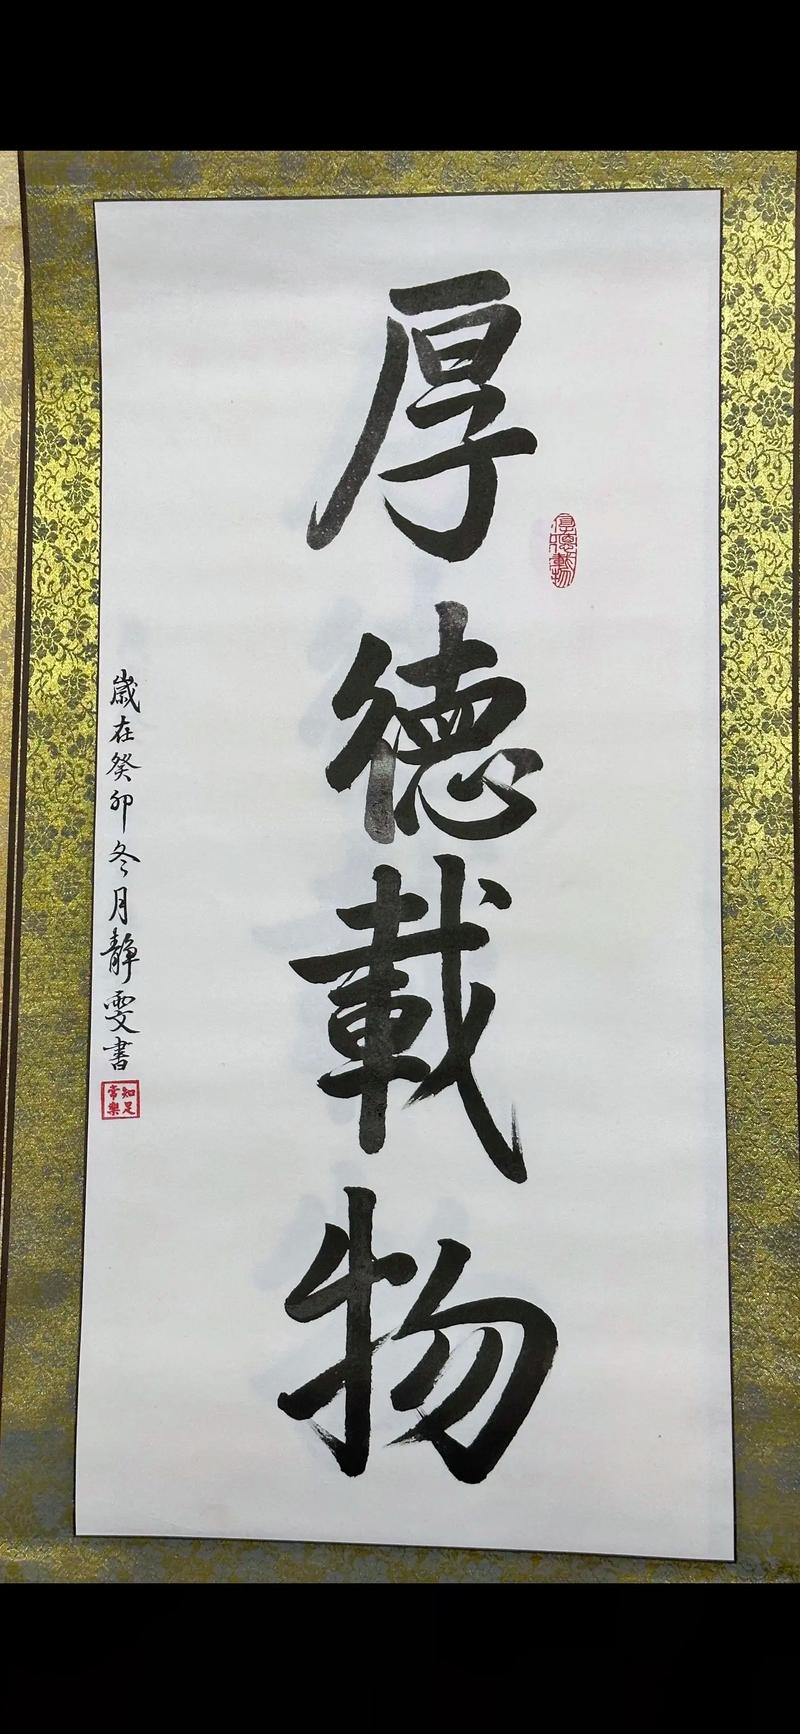 厚德載物
厚德載物
歲在癸卯冬月靜雯書
知足
常樂